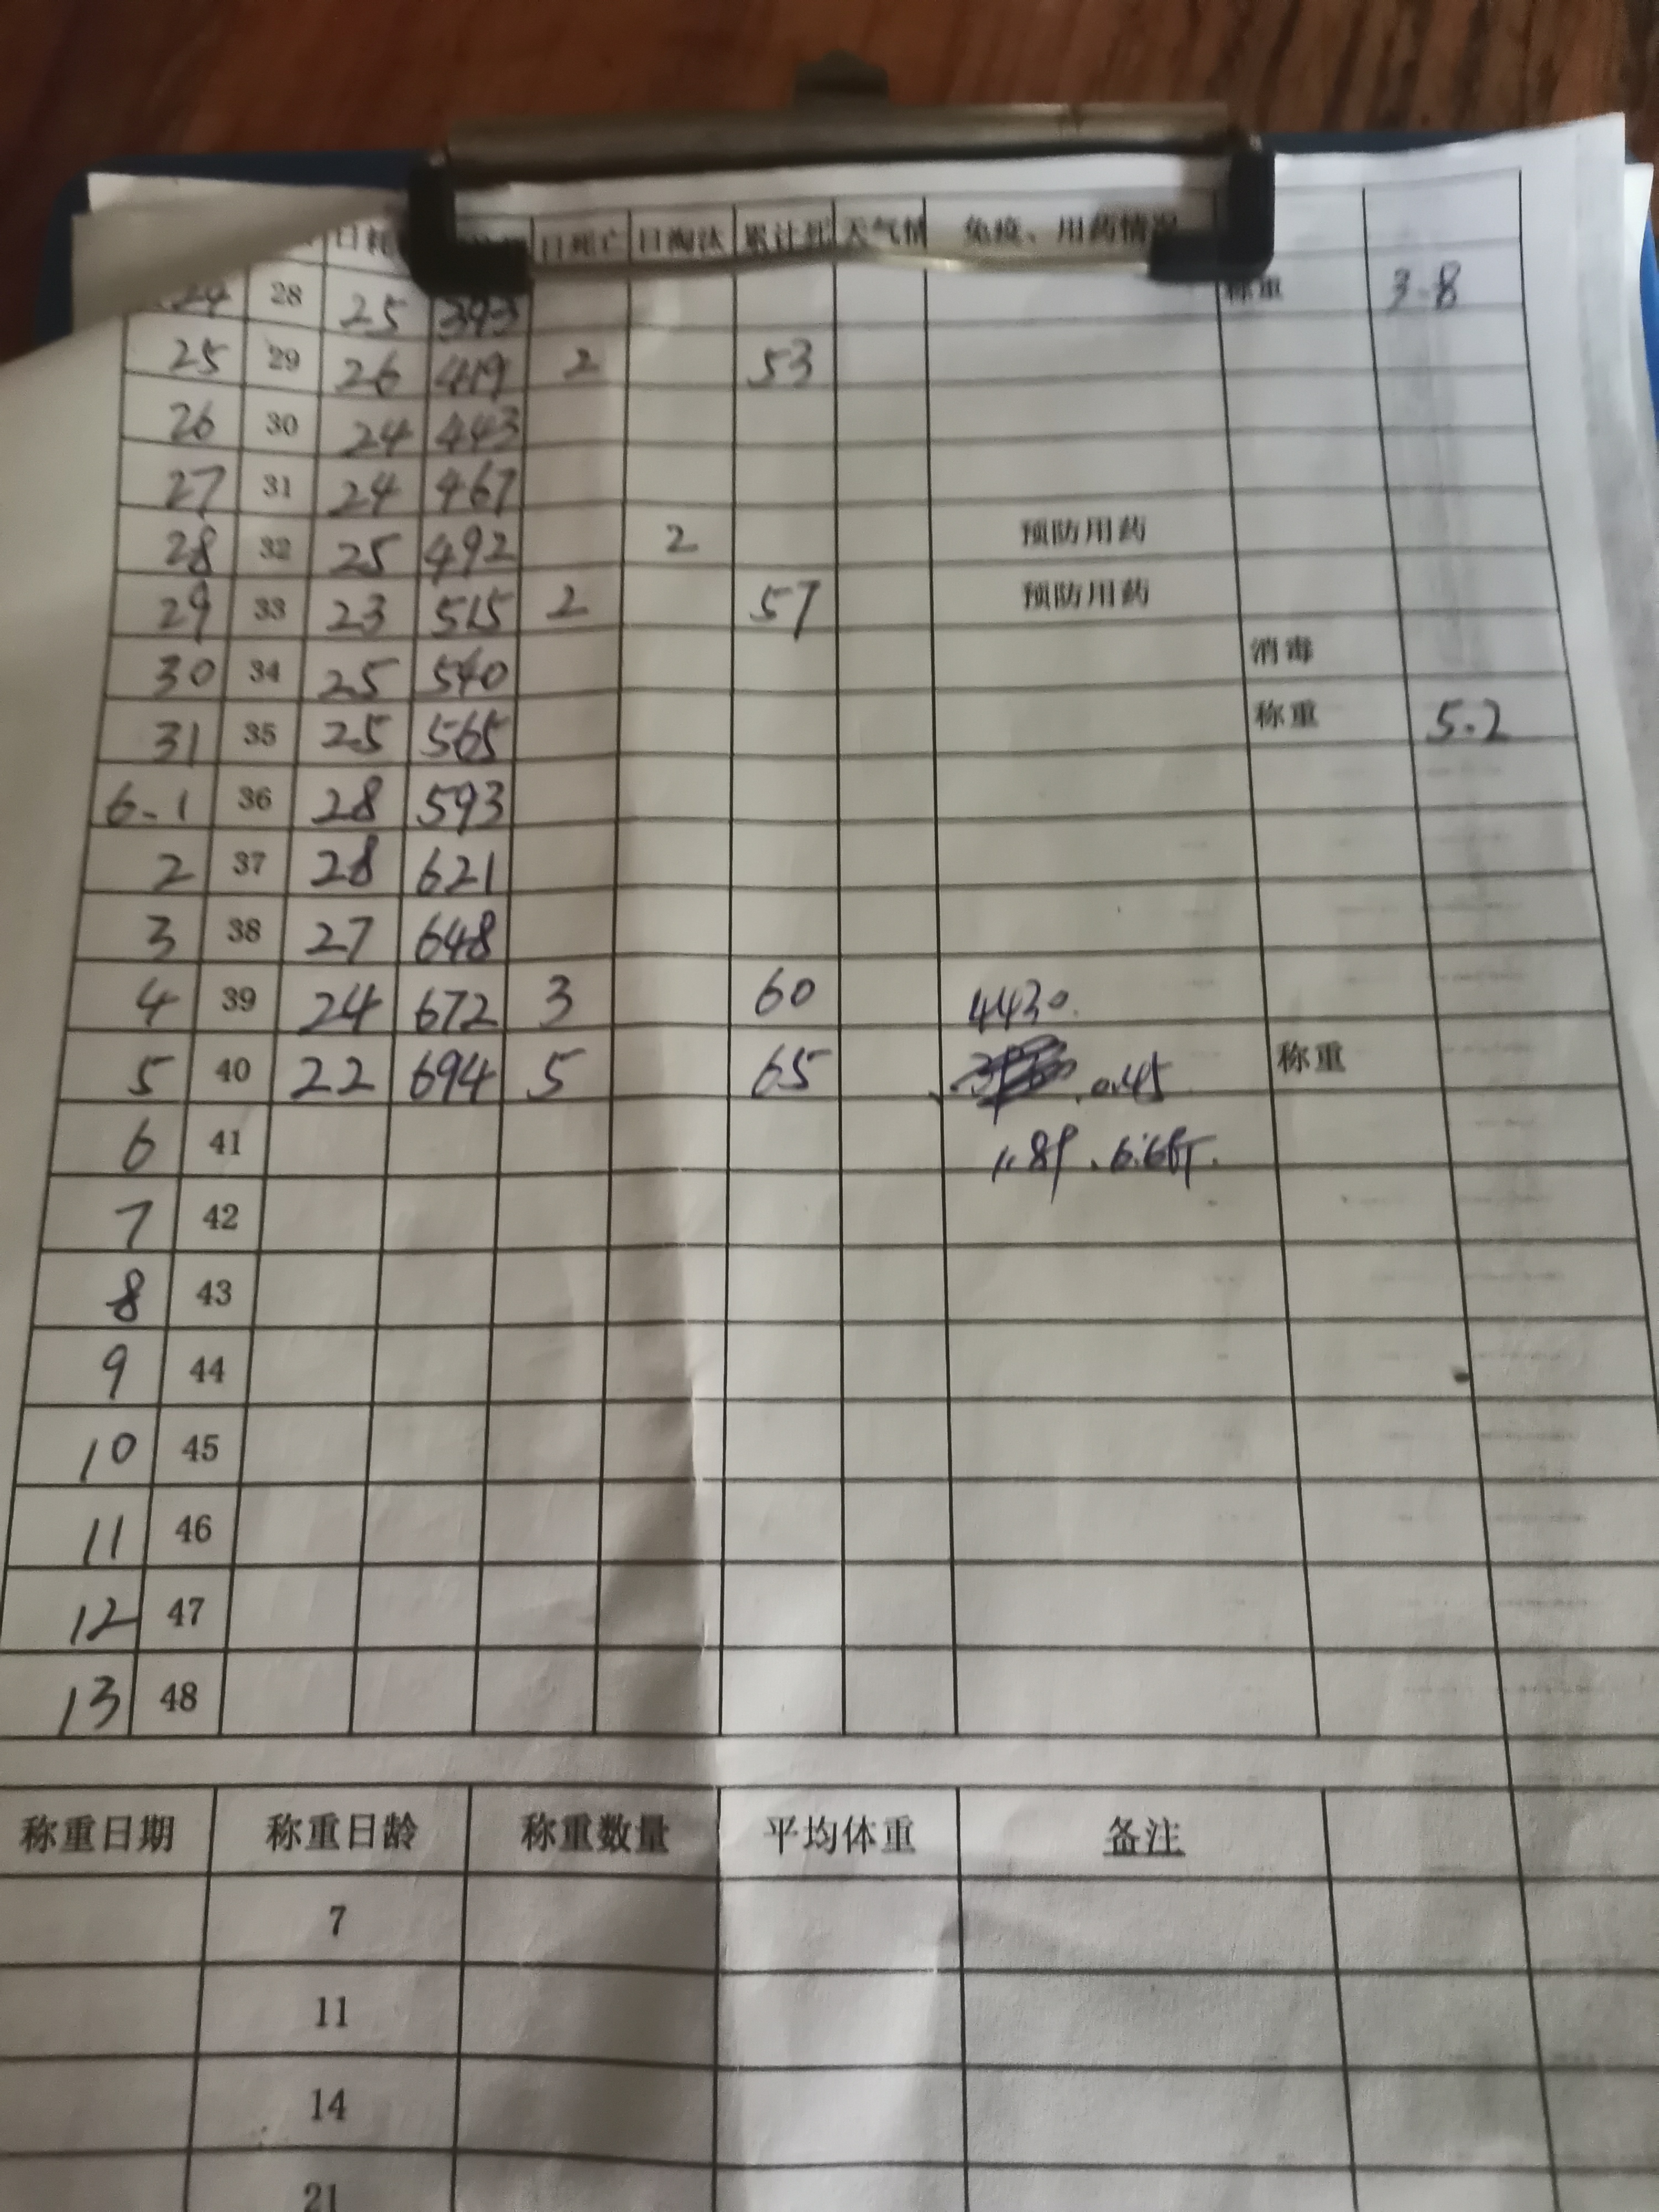 日耗 日死亡 日淘汰 累计死 天气情 免疫、用药情况
24 28 25 393 称重 3.8
25 29 26 419 2 53
26 30 24 443
27 31 24 467
28 32 25 492 2 预防用药
29 33 23 515 2 57 预防用药
30 34 25 540 消毒
31 35 25 565 称重 5.2
6-1 36 28 593
2 37 28 621
3 38 27 648
4 39 24 672 3 60 4430.
5 40 22 694 5 65 0.45 称重
6 41
7 42
8 43
9 44
10 45
11 46
12 47
13 48
称重日期 称重日龄 称重数量 平均体重 备注
7
11
14
21